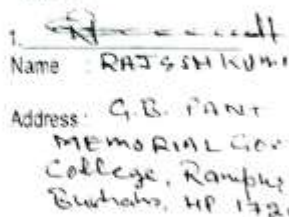 1.
Name : RAJESH KUMA
Address: G.B. PANT
MEMORIAL GOV
College, Rampu
HP 172